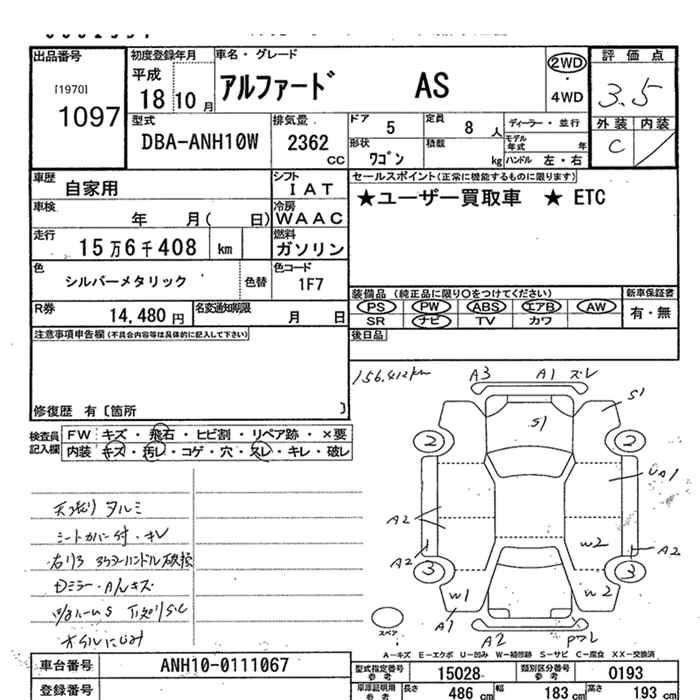 出品番号
[1970]
1097
初度登録年月
平成
18 10 月
車名・グレード
アルファード AS
2WD
・
4WD
評価点
3.5
外装 内装
C
型式
DBA-ANH10W
排気量
2362
CC
ドア 5
定員 8 人
形状 ワゴン
積載 kg
ディーラー・並行
モデル年式 年
ハンドル 左・右
車歴 自家用
シフト IAT
車検 年 月( 日)
冷房 WAAC
走行 15万6千408 km
燃料 ガソリン
色 シルバーメタリック
色替
色コード 1F7
R券 14,480 円
名変通知期限 月 日
セールスポイント(正常に機能するものに限ります)
★ユーザー買取車 ★ ETC
装備品 (純正品に限り○をつけてください)
PS PW ABS エアB AW
SR ナビ TV カワ
新車保証書
有・無
後日品
注意事項申告欄(不具合内容等は具体的に記入して下さい)
修復歴 有〔箇所 〕
検査員記入欄
FW キズ・飛石・ヒビ割・リペア跡・×要
内装 キズ・汚レ・コゲ・穴・スレ・キレ・破レ
天張り タルミ
シートカバー付・キレ
156,412km
A3 A1 ズレ
S1
S1
2 2
UA1
A2
A2
W2
A2
3 3
W1
W2
A1
A2
スペア
A-キズ E-エクボ U-凹み W-補修跡 S-サビ C-腐食 XX-交換済
車台番号 ANH10-0111067
登録番号
型式指定番号 参考 15028
類別区分番号 参考 0193
車庫証明用 参考 長さ 486 cm 幅 183 cm 高さ 193 cm